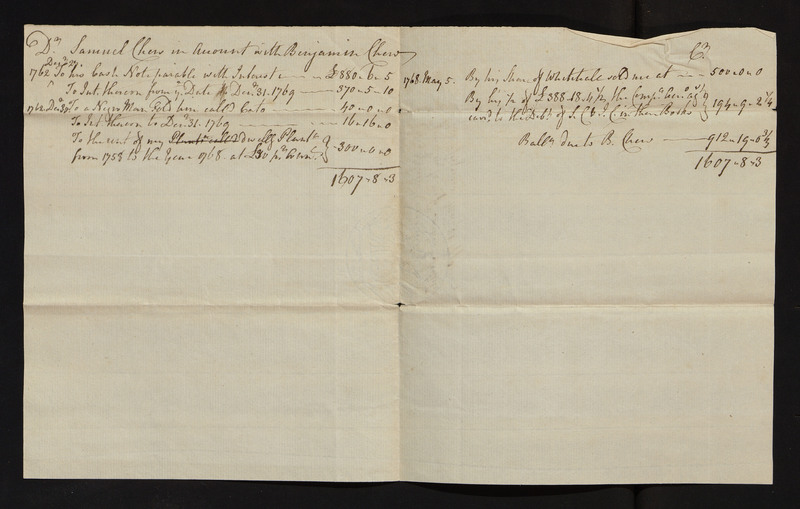 Dr. Samuel Chew in Account with Benjamin Chew
1762 To his Cash Note paiable with Interest £880 " 6 " 5
To Int. thereon from ye. Date to Decr. 31. 1769 370 " 5 " 10
To a Negro Man sold him called Cato 40 " 0 " 0
To Int. thereon to Decr. 31. 1769 16 " 16 " 0
To the rent of my dwellg. Plantn.
from 1758 to the Year 1768. at £30 pr. Ann. } 300 " 0 " 0
1607 " 8 " 3
Cr.
1768 May 5. By his Share of Whitehall sold me at 500 " 0 " 0
By his ½ of £388.18.4½ the Compa.
card. to the Debt. of S. C & J. C in their Books } 194 " 9 " 2¼
Balle. due to B. Chew 912 " 19 " 0¾
1607 " 8 " 3